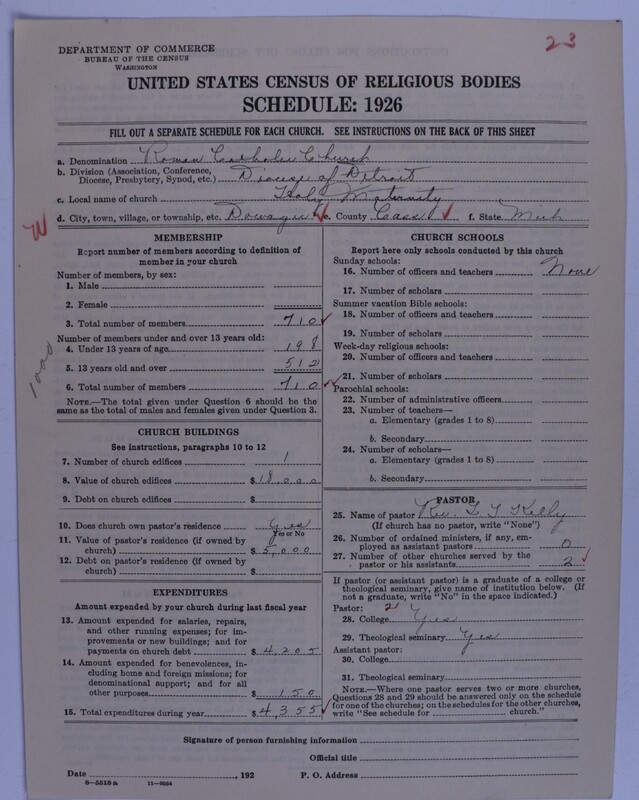 DEPARTMENT OF COMMERCE
BUREAU OF THE CENSUS
WASHINGTON
23
UNITED STATES CENSUS OF RELIGIOUS BODIES
SCHEDULE: 1926
FILL OUT A SEPARATE SCHEDULE FOR EACH CHURCH. SEE INSTRUCTIONS ON THE BACK OF THIS SHEET
a. Denomination Roman Catholic Church
b. Division (Association, Conference, Diocese, Presbytery, Synod, etc.) Diocese of Detroit
c. Local name of church Holy Maternity
d. City, town, village, or township, etc. Dowagiac e. County Cass f. State Mich
MEMBERSHIP
Report number of members according to definition of
member in your church
Number of members, by sex:
1. Male
2. Female
3. Total number of members 710
Number of members under and over 13 years old:
4. Under 13 years of age 198
5. 13 years old and over 512
6. Total number of members 710
NOTE.—The total given under Question 6 should be the
same as the total of males and females given under Question 3.
CHURCH BUILDINGS
See instructions, paragraphs 10 to 12
7. Number of church edifices 1
8. Value of church edifices $18,000
9. Debt on church edifices $
10. Does church own pastor's residence Yes
Yes or No
11. Value of pastor's residence (if owned by
church) $5,000
12. Debt on pastor's residence (if owned by
church) $
EXPENDITURES
Amount expended by your church during last fiscal year
13. Amount expended for salaries, repairs,
and other running expenses; for im-
provements or new buildings; and for
payments on church debt $4,205
14. Amount expended for benevolences, in-
cluding home and foreign missions; for
denominational support; and for all
other purposes $150
15. Total expenditures during year $4,355
CHURCH SCHOOLS
Report here only schools conducted by this church
Sunday schools:
16. Number of officers and teachers None
17. Number of scholars
Summer vacation Bible schools:
18. Number of officers and teachers
19. Number of scholars
Week-day religious schools:
20. Number of officers and teachers
21. Number of scholars
Parochial schools:
22. Number of administrative officers
23. Number of teachers—
a. Elementary (grades 1 to 8)
b. Secondary
24. Number of scholars—
a. Elementary (grades 1 to 8)
b. Secondary
PASTOR
25. Name of pastor Rev. Kelly
(If church has no pastor, write "None")
26. Number of ordained ministers, if any, em-
ployed as assistant pastors 0
27. Number of other churches served by the
pastor or his assistants 2
If pastor (or assistant pastor) is a graduate of a college or
theological seminary, give name of institution below. (If
not a graduate, write "No" in the space indicated.)
Pastor: 2
28. College Yes
29. Theological seminary Yes
Assistant pastor:
30. College
31. Theological seminary
NOTE.—Where one pastor serves two or more churches,
Questions 28 and 29 should be answered only on the schedule
for one of the churches; on the schedules for the other churches,
write "See schedule for church."
Signature of person furnishing information
Official title
Date , 192 P. O. Address